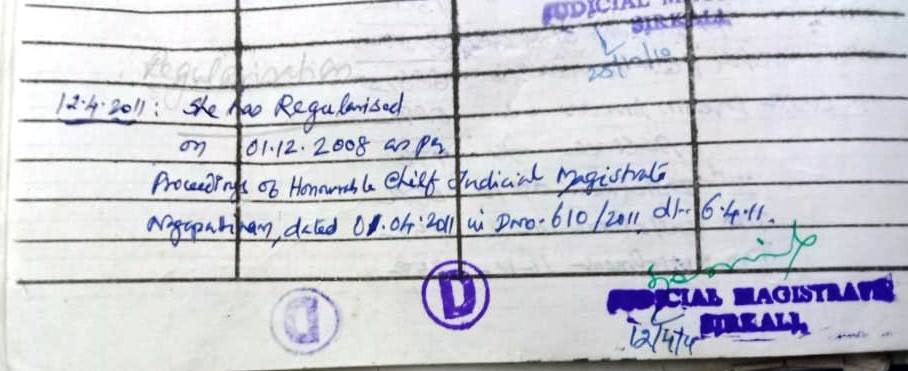 JUDICIAL
SIRKALI
Regularisation
12.4.2011: She has Regularised
on 01.12.2008 as per
Proceedings of Honourable Chief Judicial Magistrate
Nagapattinam, dated 01.04.2011 in Dno. 610/2011 dt. 6.4.11.
D
JUDICIAL MAGISTRATE
SIRKALI
12/4/11